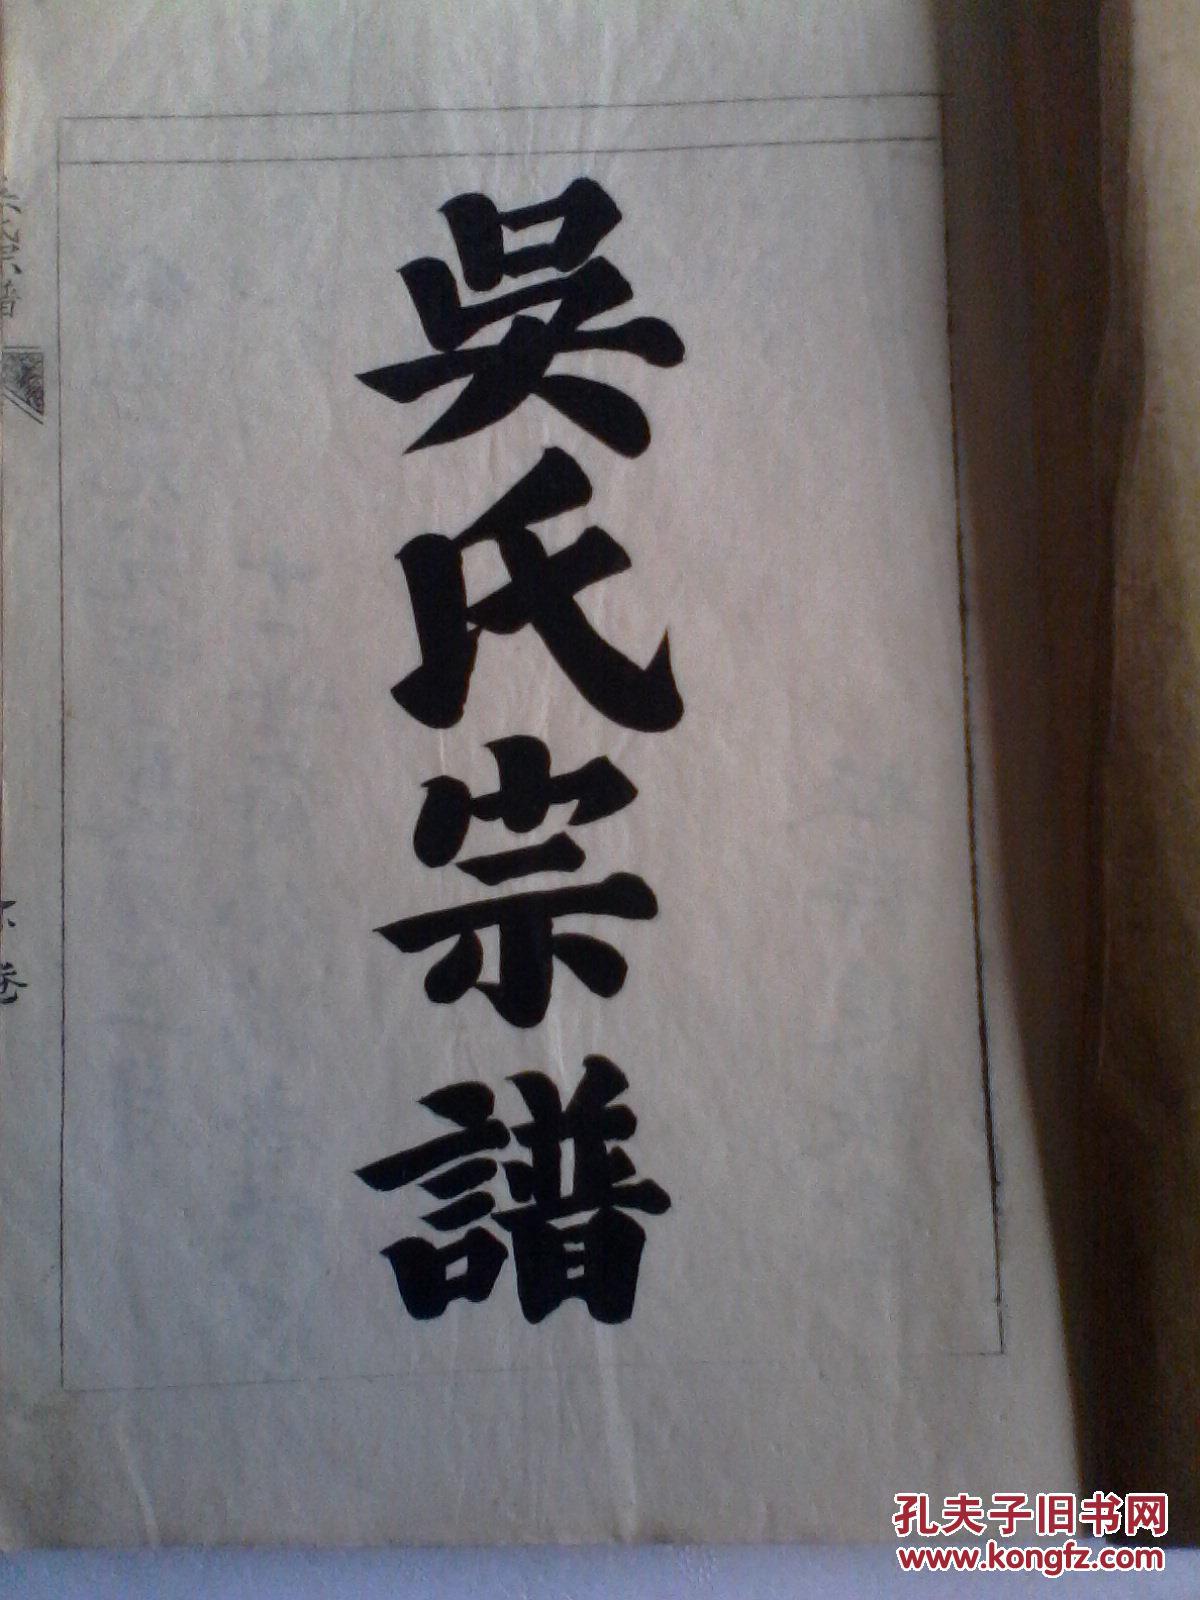 吳氏宗譜
孔夫子旧书网
www.kongfz.com